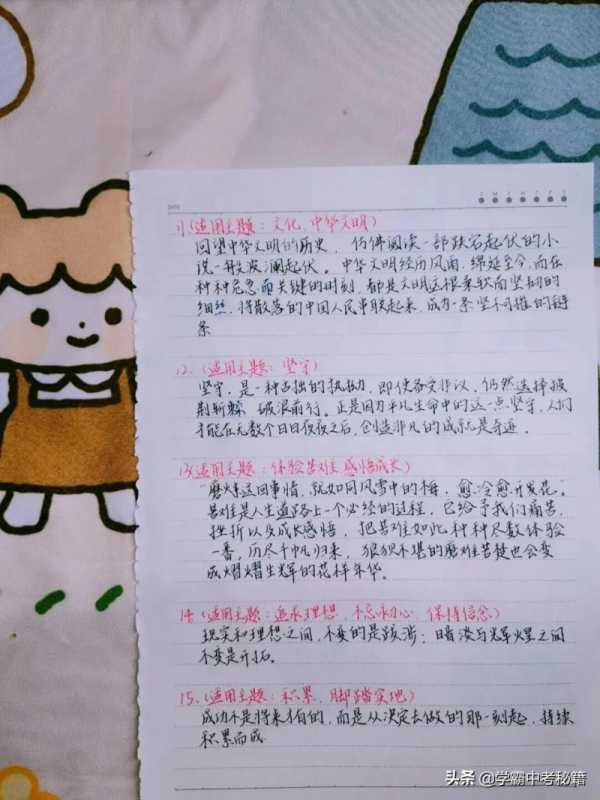 DATE
S M T W T F S
11.(适用主题：文化、中华文明)
回望中华文明的历史，仿佛阅读一部跌宕起伏的小
说一般波澜起伏。中华文明经历风雨，绵延至今，而在
种种危急而关键的时刻，都是文明这根柔软而坚韧的
细丝，将散落的中国人民串联起来，成为一条坚不可摧的链
条
12.(适用主题：坚守)
坚守，是一种古拙的执拗，即使备受非议，仍然选择披
荆斩棘，破浪前行。正是因为平凡生命中的这一点坚守，人们
才能在无数个日日夜夜之后，创造非凡的成就与奇迹。
13.(适用主题：体验苦难 感悟成长)
"磨炼这回事情，就如同风雪中的梅，愈冷愈开花。"
苦难是人生道路上一个必经的过程，它给予我们痛苦、
挫折以及成长感悟，把苦难如此种种尽数体验
一番，历尽千帆归来，狠狠不堪的磨难苦楚也会变
成熠熠生辉的花样年华。
14.(适用主题：追求理想、不忘初心、保持信念)
现实和理想之间，不变的是跋涉；暗淡与辉煌之间
不变是开拓。
15.(适用主题：积累、脚踏实地)
成功不是将来才有的，而是从决定去做的那一刻起，持续
积累而成
头条 @学霸中考秘籍